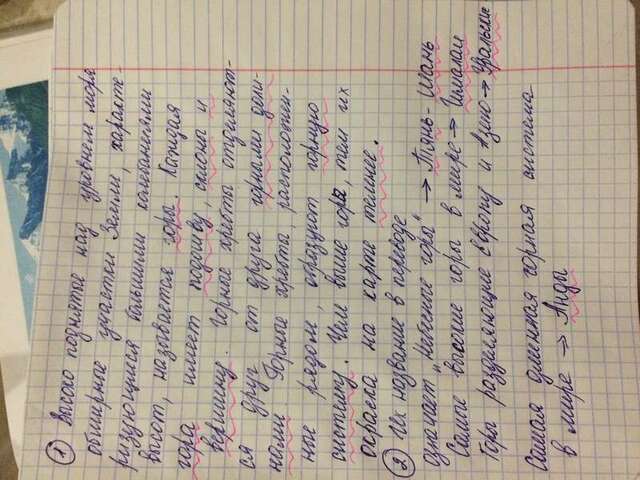 ① Высоко поднятое над уровнем моря
обширные участки Земли, характе-
ризующиеся большими колебаниями
высот, называется гора. Каждая
гора имеет подошву, склоны и
вершину. Горные хребты отделяют-
ся друг от друга горными доли-
нами. Горные хребты, расположен-
ные рядом, образуют горную
систему. Чем выше гора, тем их
окраска на карте темнее.
② Их название в переводе
означает "небесные горы" → Тянь-Шань
Самые высокие горы в мире → Гималаи
Горы разделяющие Европу и Азию → Уральские
Самая длинная горная система
в мире → Анды